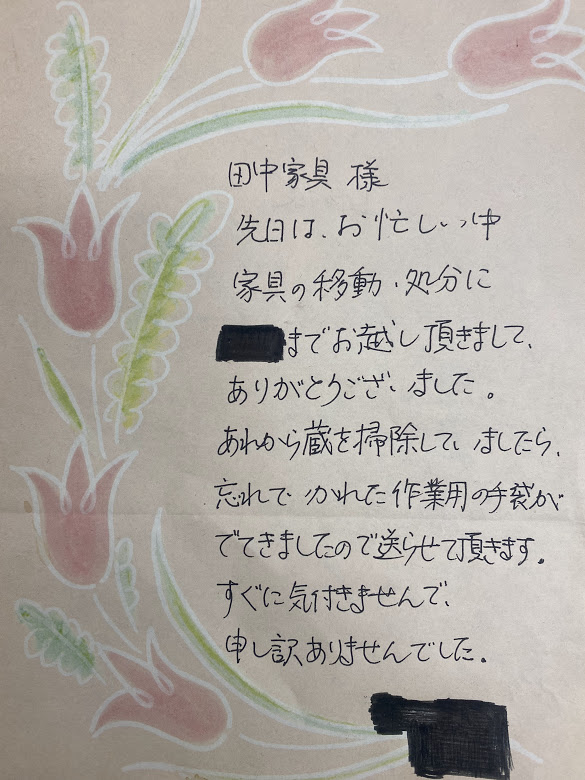 田中家具 様
先日は、お忙しい中
家具の移動・処分に
までお越し頂きまして、
ありがとうございました。
あれから蔵を掃除していましたら、
忘れていかれた作業用の手袋が
でてきましたので送らせて頂きます。
すぐに気付きませんで、
申し訳ありませんでした。